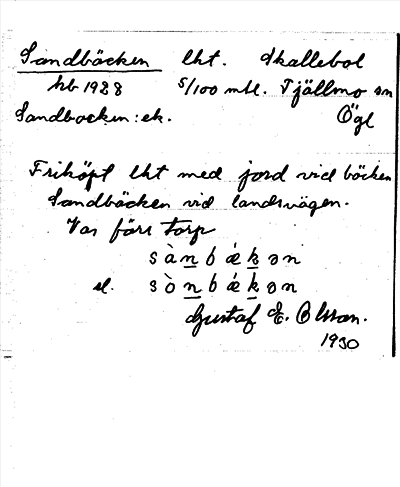 Sandbäcken lht. Skallebol
hb 1928 5/100 mtl. Tjällmo sn
Sandbocken: ek. Ögl
Friköpt lht med jord vid bäcken
Sandbäcken vid landsvägen.
Var förr torp
sànbǽkən
el. sònbǽkən
Gustaf E. Olsson.
1930